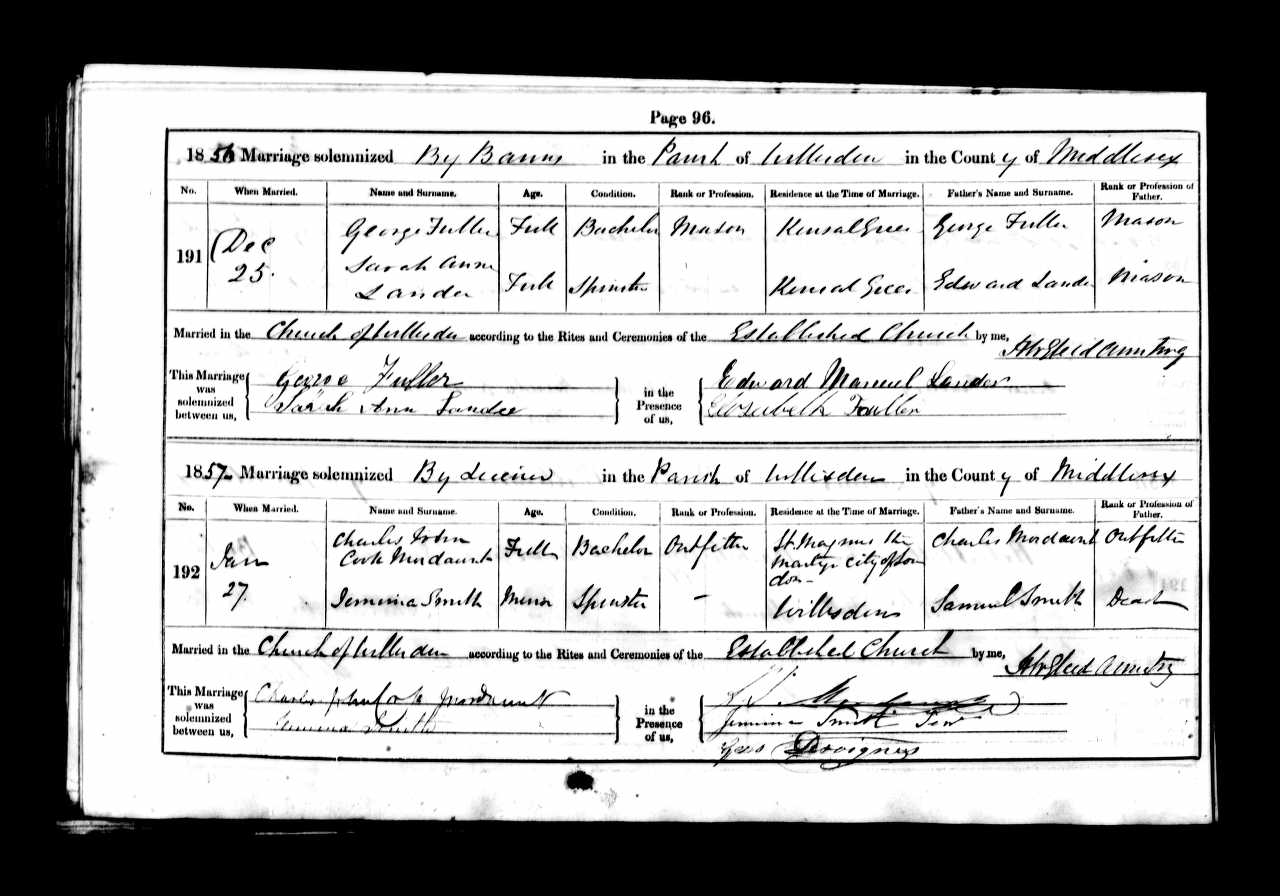 Page 96.
1856 Marriage solemnized By Banns in the Parish of Willesden in the County of Middlesex
No. When Married. Name and Surname. Age. Condition. Rank or Profession. Residence at the Time of Marriage. Father's Name and Surname. Rank or Profession of Father.
191 Dec 25. George Fuller Full Bachelor Mason Kensal Green George Fuller Mason
Sarah Anne Lander Full Spinster Kensal Green Edward Lander Mason
Married in the Church of Willesden according to the Rites and Ceremonies of the Established Church by me,
This Marriage was solemnized between us, George Fuller in the Presence of us, Edward Manuel Lander
Sarah Ann Lander Elizabeth Fuller
1857 Marriage solemnized By Licence in the Parish of Willesden in the County of Middlesex
No. When Married. Name and Surname. Age. Condition. Rank or Profession. Residence at the Time of Marriage. Father's Name and Surname. Rank or Profession of Father.
192 Jan 27. Charles John Cook Mordaunt Full Bachelor Outfitter St. Magnus the Martyr City of London Charles Mordaunt Outfitter
Jemima Smith Minor Spinster – Willesden Samuel Smith Dead
Married in the Church of Willesden according to the Rites and Ceremonies of the Established Church by me,
This Marriage was solemnized between us, Charles John Cook Mordaunt in the Presence of us,
Jemima Smith Jemima Smith